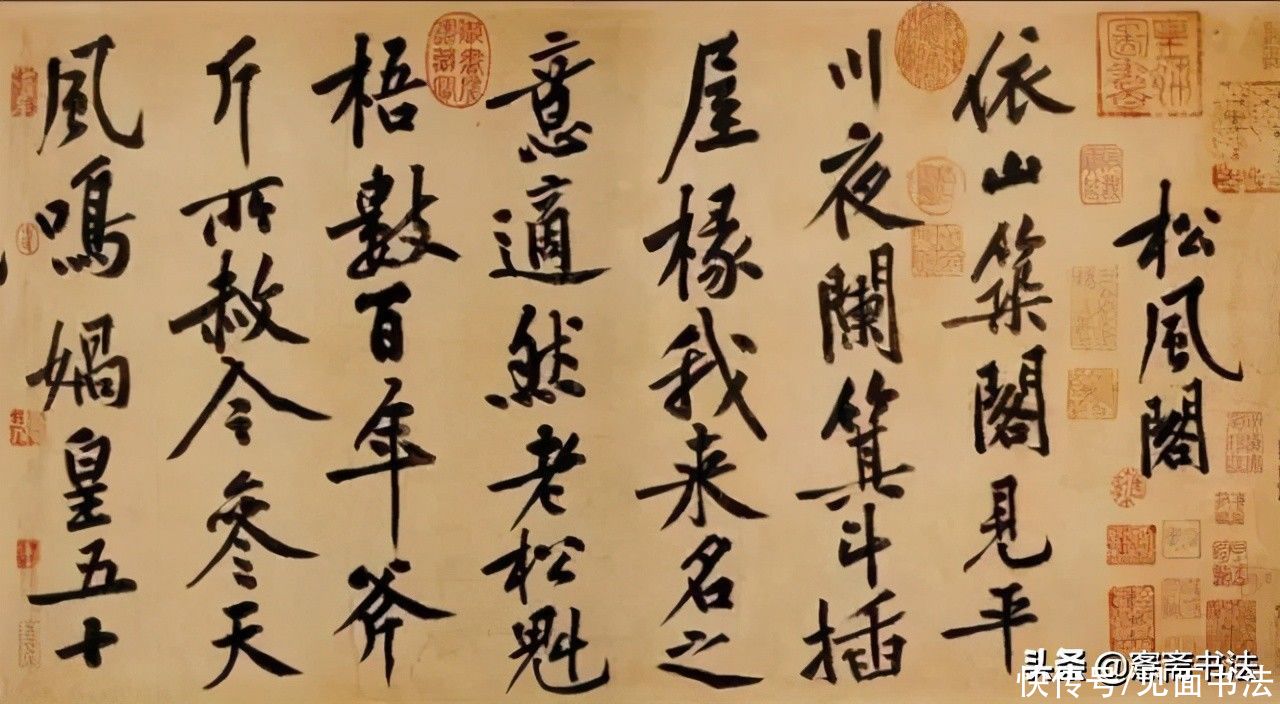 松風閣
依山築閣見平
川夜闌箕斗插
屋椽我来名之
意適然老松魁
梧數百年斧
斤所赦今參天
風鳴媧皇五十
头条 @斋书法
快传号/见面书法